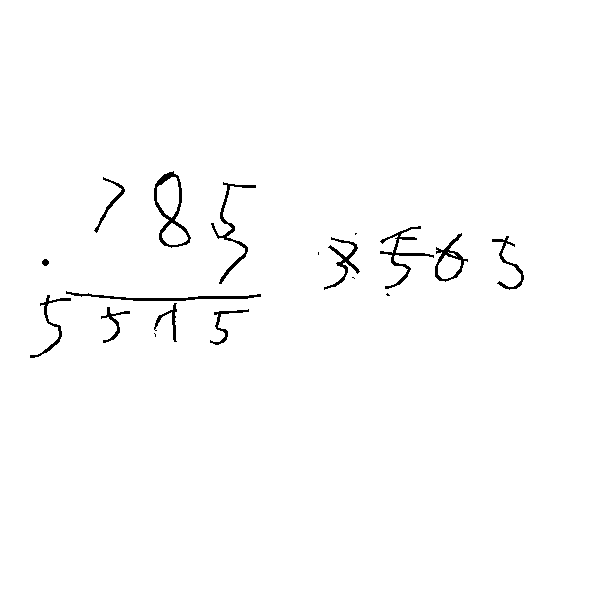 785
. 7
5515
3565